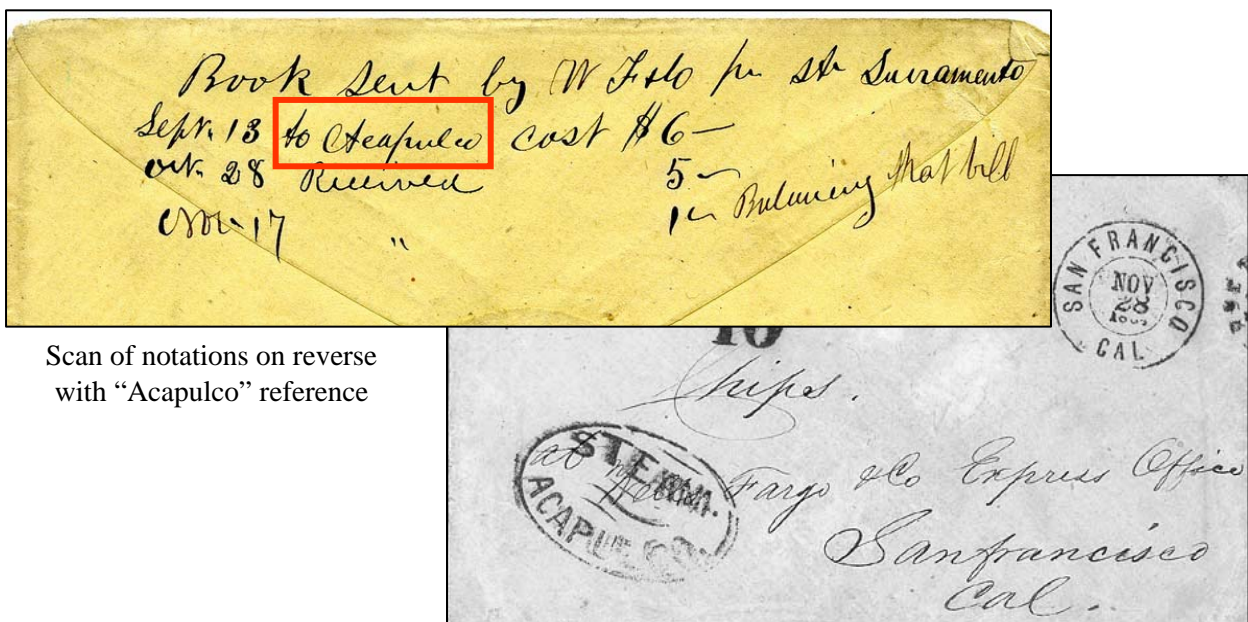 Book sent by W F & Co pr Str Sacramento
Sept. 13 to Acapulco cost $6—
Oct. 28 Received 5—
Nov. 17 " 1— Balancing that bill
Scan of notations on reverse
with “Acapulco” reference
SAN FRANCISCO
NOV
28
CAL
10
Chipes.
STEAM.
ACAPULCO
at Wells Fargo &Co Express Office
Sanfrancisco
Cal.